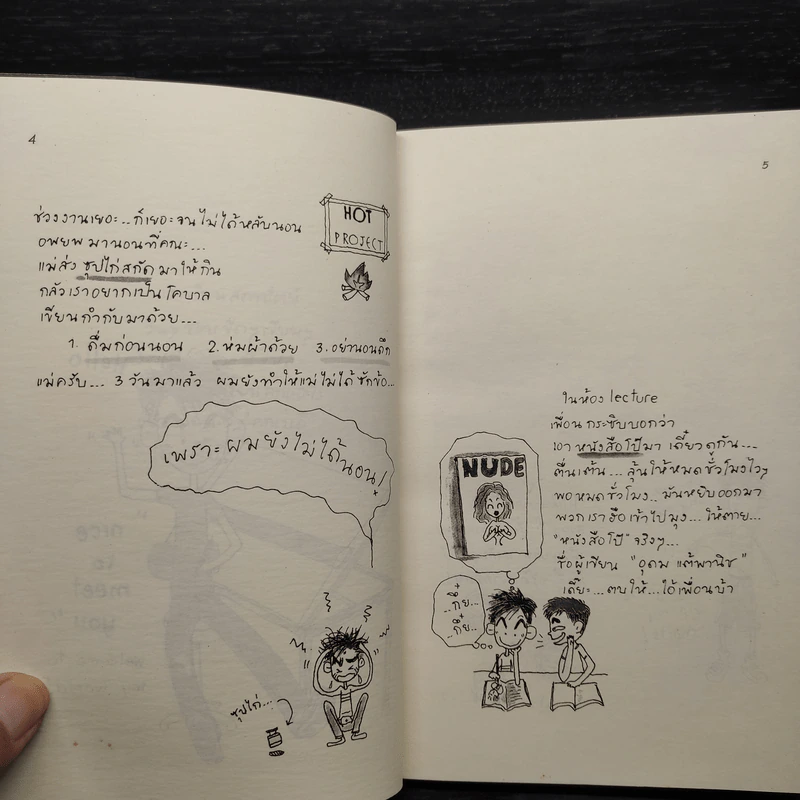 4
ช่วงงานเยอะ... ก็เยอะจนไม่ได้หลับนอน
อพยพมานอนที่คณะ...
แม่ส่ง ซุปไก่สกัด มาให้กิน
กลัวเราอยากเป็นโคบาล
เขียนกำกับมาด้วย...
1. ดื่มก่อนนอน 2. ห่มผ้าด้วย 3. อย่านอนดึก
แม่ครับ... 3 วันมาแล้ว ผมยังทำให้แม่ไม่ได้ซักข้อ...
HOT
PROJECT
เพราะผมยังไม่ได้นอน!
ซุปไก่...
5
ในห้อง lecture
เพื่อนกระซิบบอกว่า
เอา หนังสือโป๊มา เดี๋ยวดูกัน...
ตื่นเต้น... ลุ้นให้หมดชั่วโมงไวๆ
พอหมดชั่วโมง.. มันหยิบออกมา
พวกเราฮือเข้าไปมุง... ให้ตาย...
"หนังสือโป๊" จริงๆ...
ชื่อผู้เขียน "อุดม แต้พานิช"
เดี๊ยะ...ตบให้...ไอ้เพื่อนบ้า
NUDE
..กึ๋ย...
..กึ๋ย..